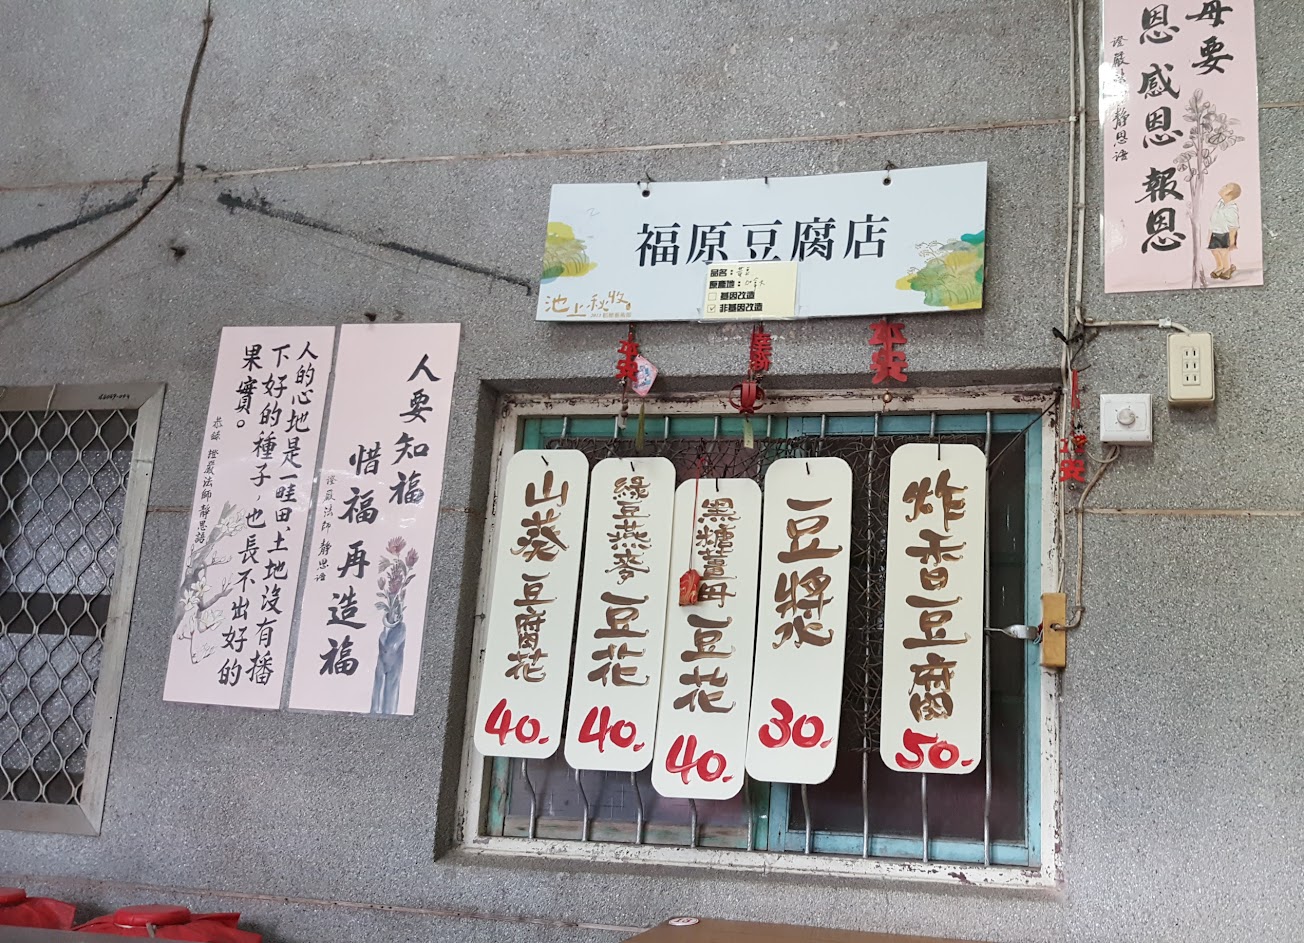 福原豆腐店
池上秋收
品名：黃豆
原產地：
基因改造
非基因改造
平安
平安
山葵豆腐花
40.
綠豆燕麥豆花
40.
黑糖薑母豆花
40.
豆漿
30.
炸香豆腐
50.
人要知福
惜福再造福
證嚴法師靜思語
人的心地是一畦田，土地沒有播
下好的種子，也長不出好的
果實。
恭錄 證嚴法師靜思語
母要
恩感恩報恩
靜思語